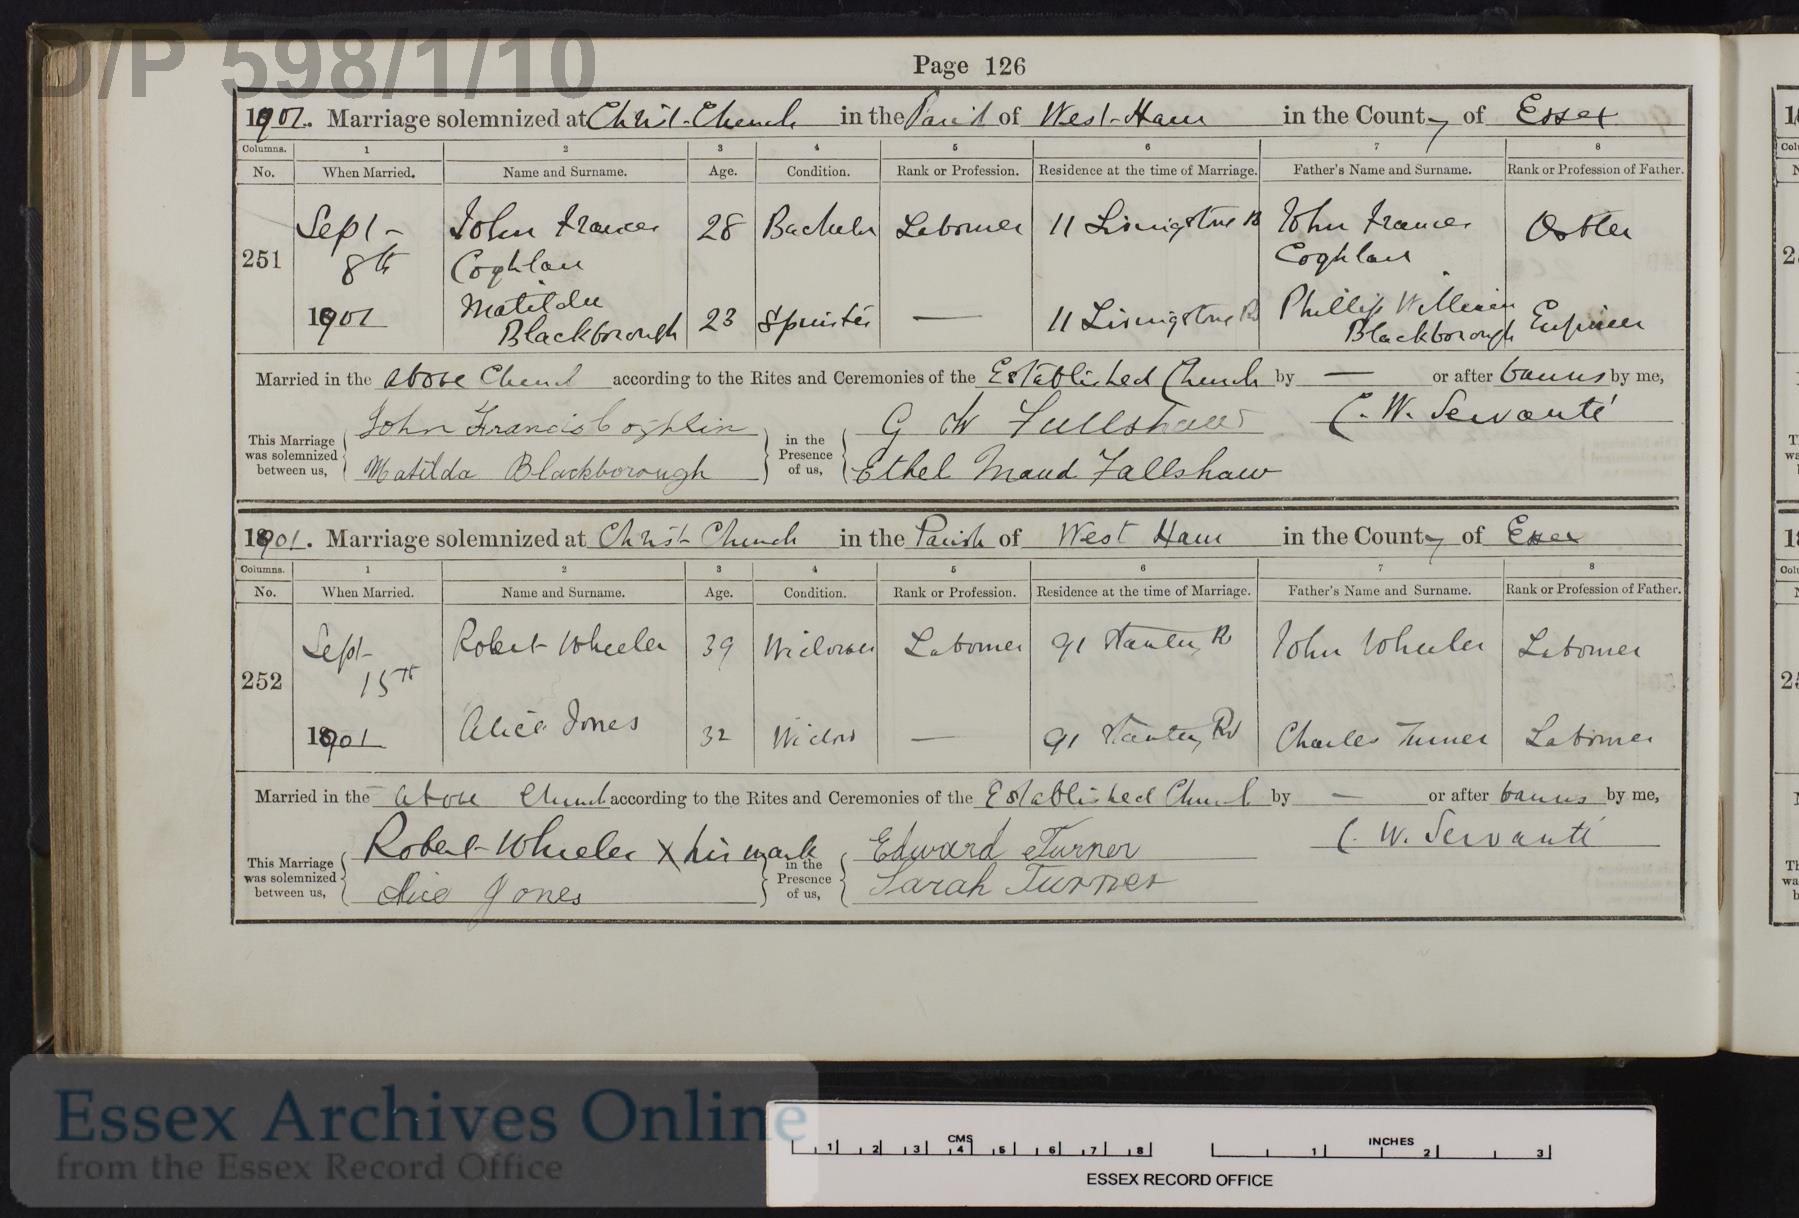 D/P 598/1/10
Page 126
1901. Marriage solemnized at Christ Church in the Parish of West Ham in the County of Essex
Columns. 1 2 3 4 5 6 7 8
No. When Married. Name and Surname. Age. Condition. Rank or Profession. Residence at the time of Marriage. Father's Name and Surname. Rank or Profession of Father.
251 Sept 8th 1901
John Frances Coghlan 28 Bachelor Labourer 11 Livingstone Rd John Frances Coghlan Ostler
Matilda Blackborough 23 Spinster — 11 Livingstone Rd Phillip William Blackborough Engineer
Married in the above Church according to the Rites and Ceremonies of the Established Church by — or after banns by me,
This Marriage was solemnized between us,
John Francis Coghlin
Matilda Blackborough
in the Presence of us,
G W Fullshaw
Ethel Maud Fallshaw
C. W. Servanté
1901. Marriage solemnized at Christ Church in the Parish of West Ham in the County of Essex
Columns. 1 2 3 4 5 6 7 8
No. When Married. Name and Surname. Age. Condition. Rank or Profession. Residence at the time of Marriage. Father's Name and Surname. Rank or Profession of Father.
252 Sept 15th 1901
Robert Wheeler 39 Widower Labourer 91 Stanley Rd John Wheeler Labourer
Alice Jones 32 Widow — 91 Stanley Rd Charles Turner Labourer
Married in the above Church according to the Rites and Ceremonies of the Established Church by — or after banns by me,
This Marriage was solemnized between us,
Robert Wheeler X his mark
Alice Jones
in the Presence of us,
Edward Turner
Sarah Turner
C. W. Servanté
Essex Archives Online
from the Essex Record Office
CMS 1 2 3 4 5 6 7 8
INCHES 1 2 3
ESSEX RECORD OFFICE